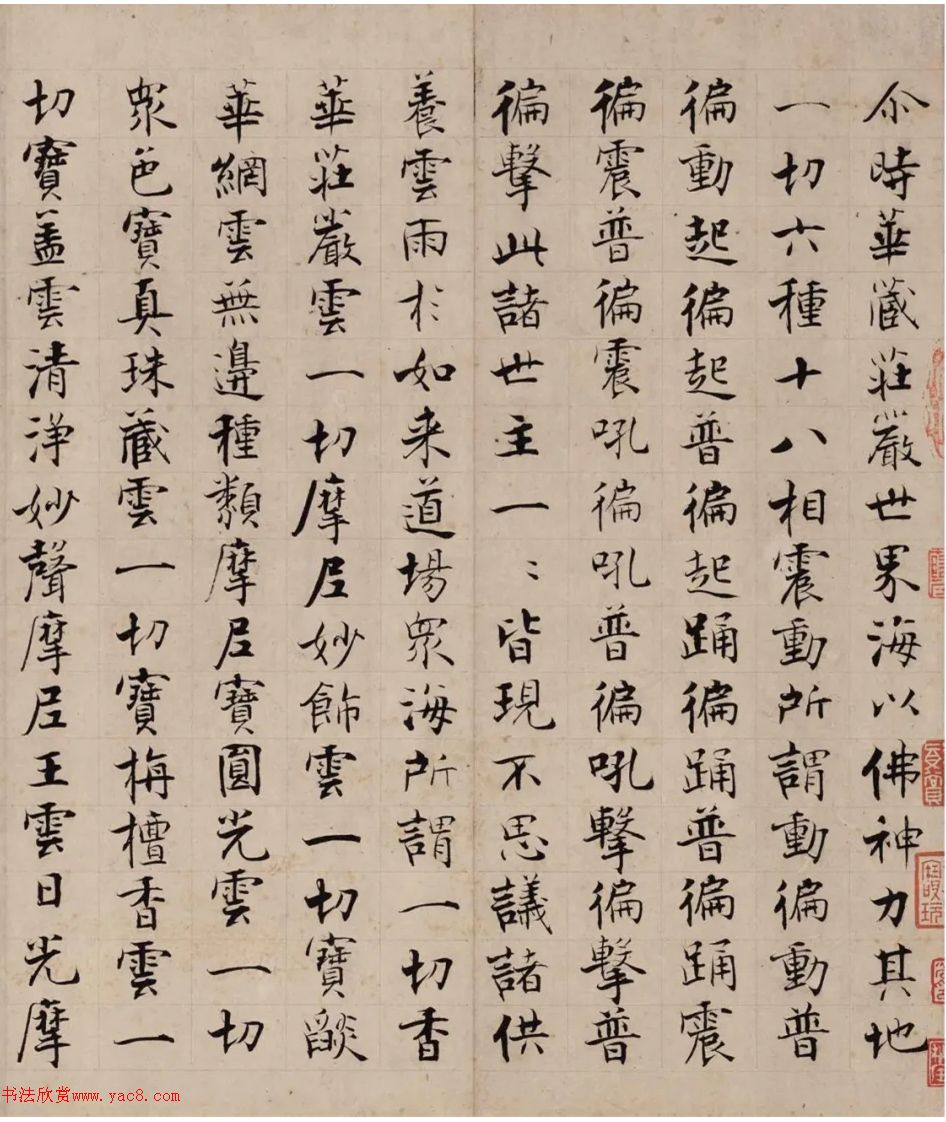 尒時華蔵莊嚴世界海以佛神力其地
一切六種十八相震動所謂動徧動普
徧動起徧起普徧起踊徧踊普徧踊震
徧震普徧震吼徧吼普徧吼擊徧擊普
徧擊此諸世主一〻皆現不思議諸供
養雲雨於如来道場衆海所謂一切香
華莊嚴雲一切摩尼妙飾雲一切寶燄
華網雲無邊種類摩尼寶圓光雲一切
衆色寶真珠蔵雲一切寶栴檀香雲一
切寶盖雲清淨妙聲摩尼王雲日光摩
书法欣赏www.yac8.com